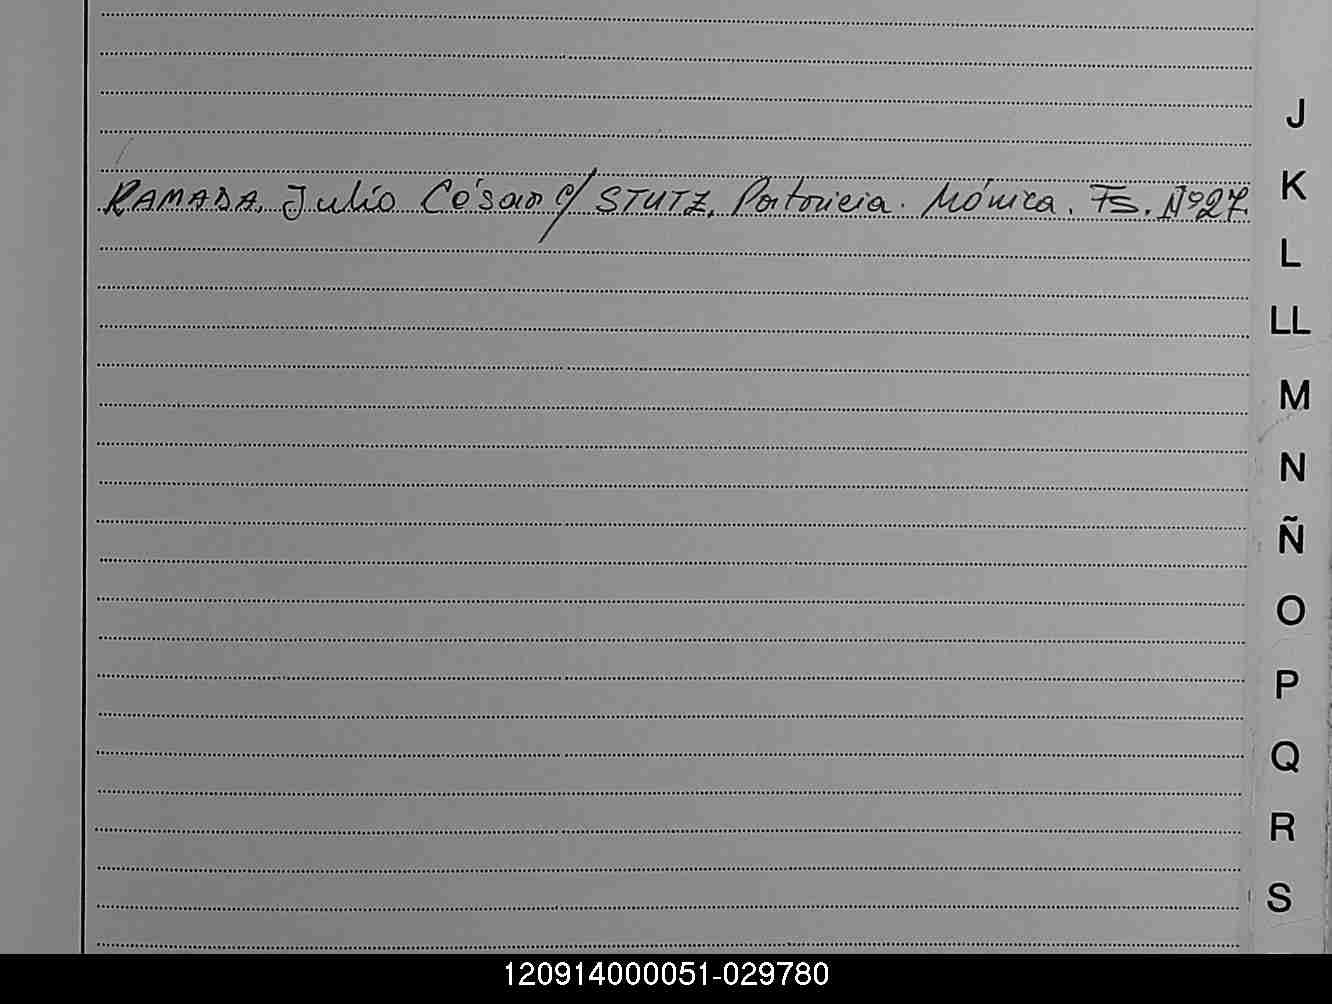 J
RAMADA, Julio César c/ STUTZ, Patricia. Mónica. Fs. Nº27.
K
L
LL
M
N
Ñ
O
P
Q
R
S
120914000051-029780